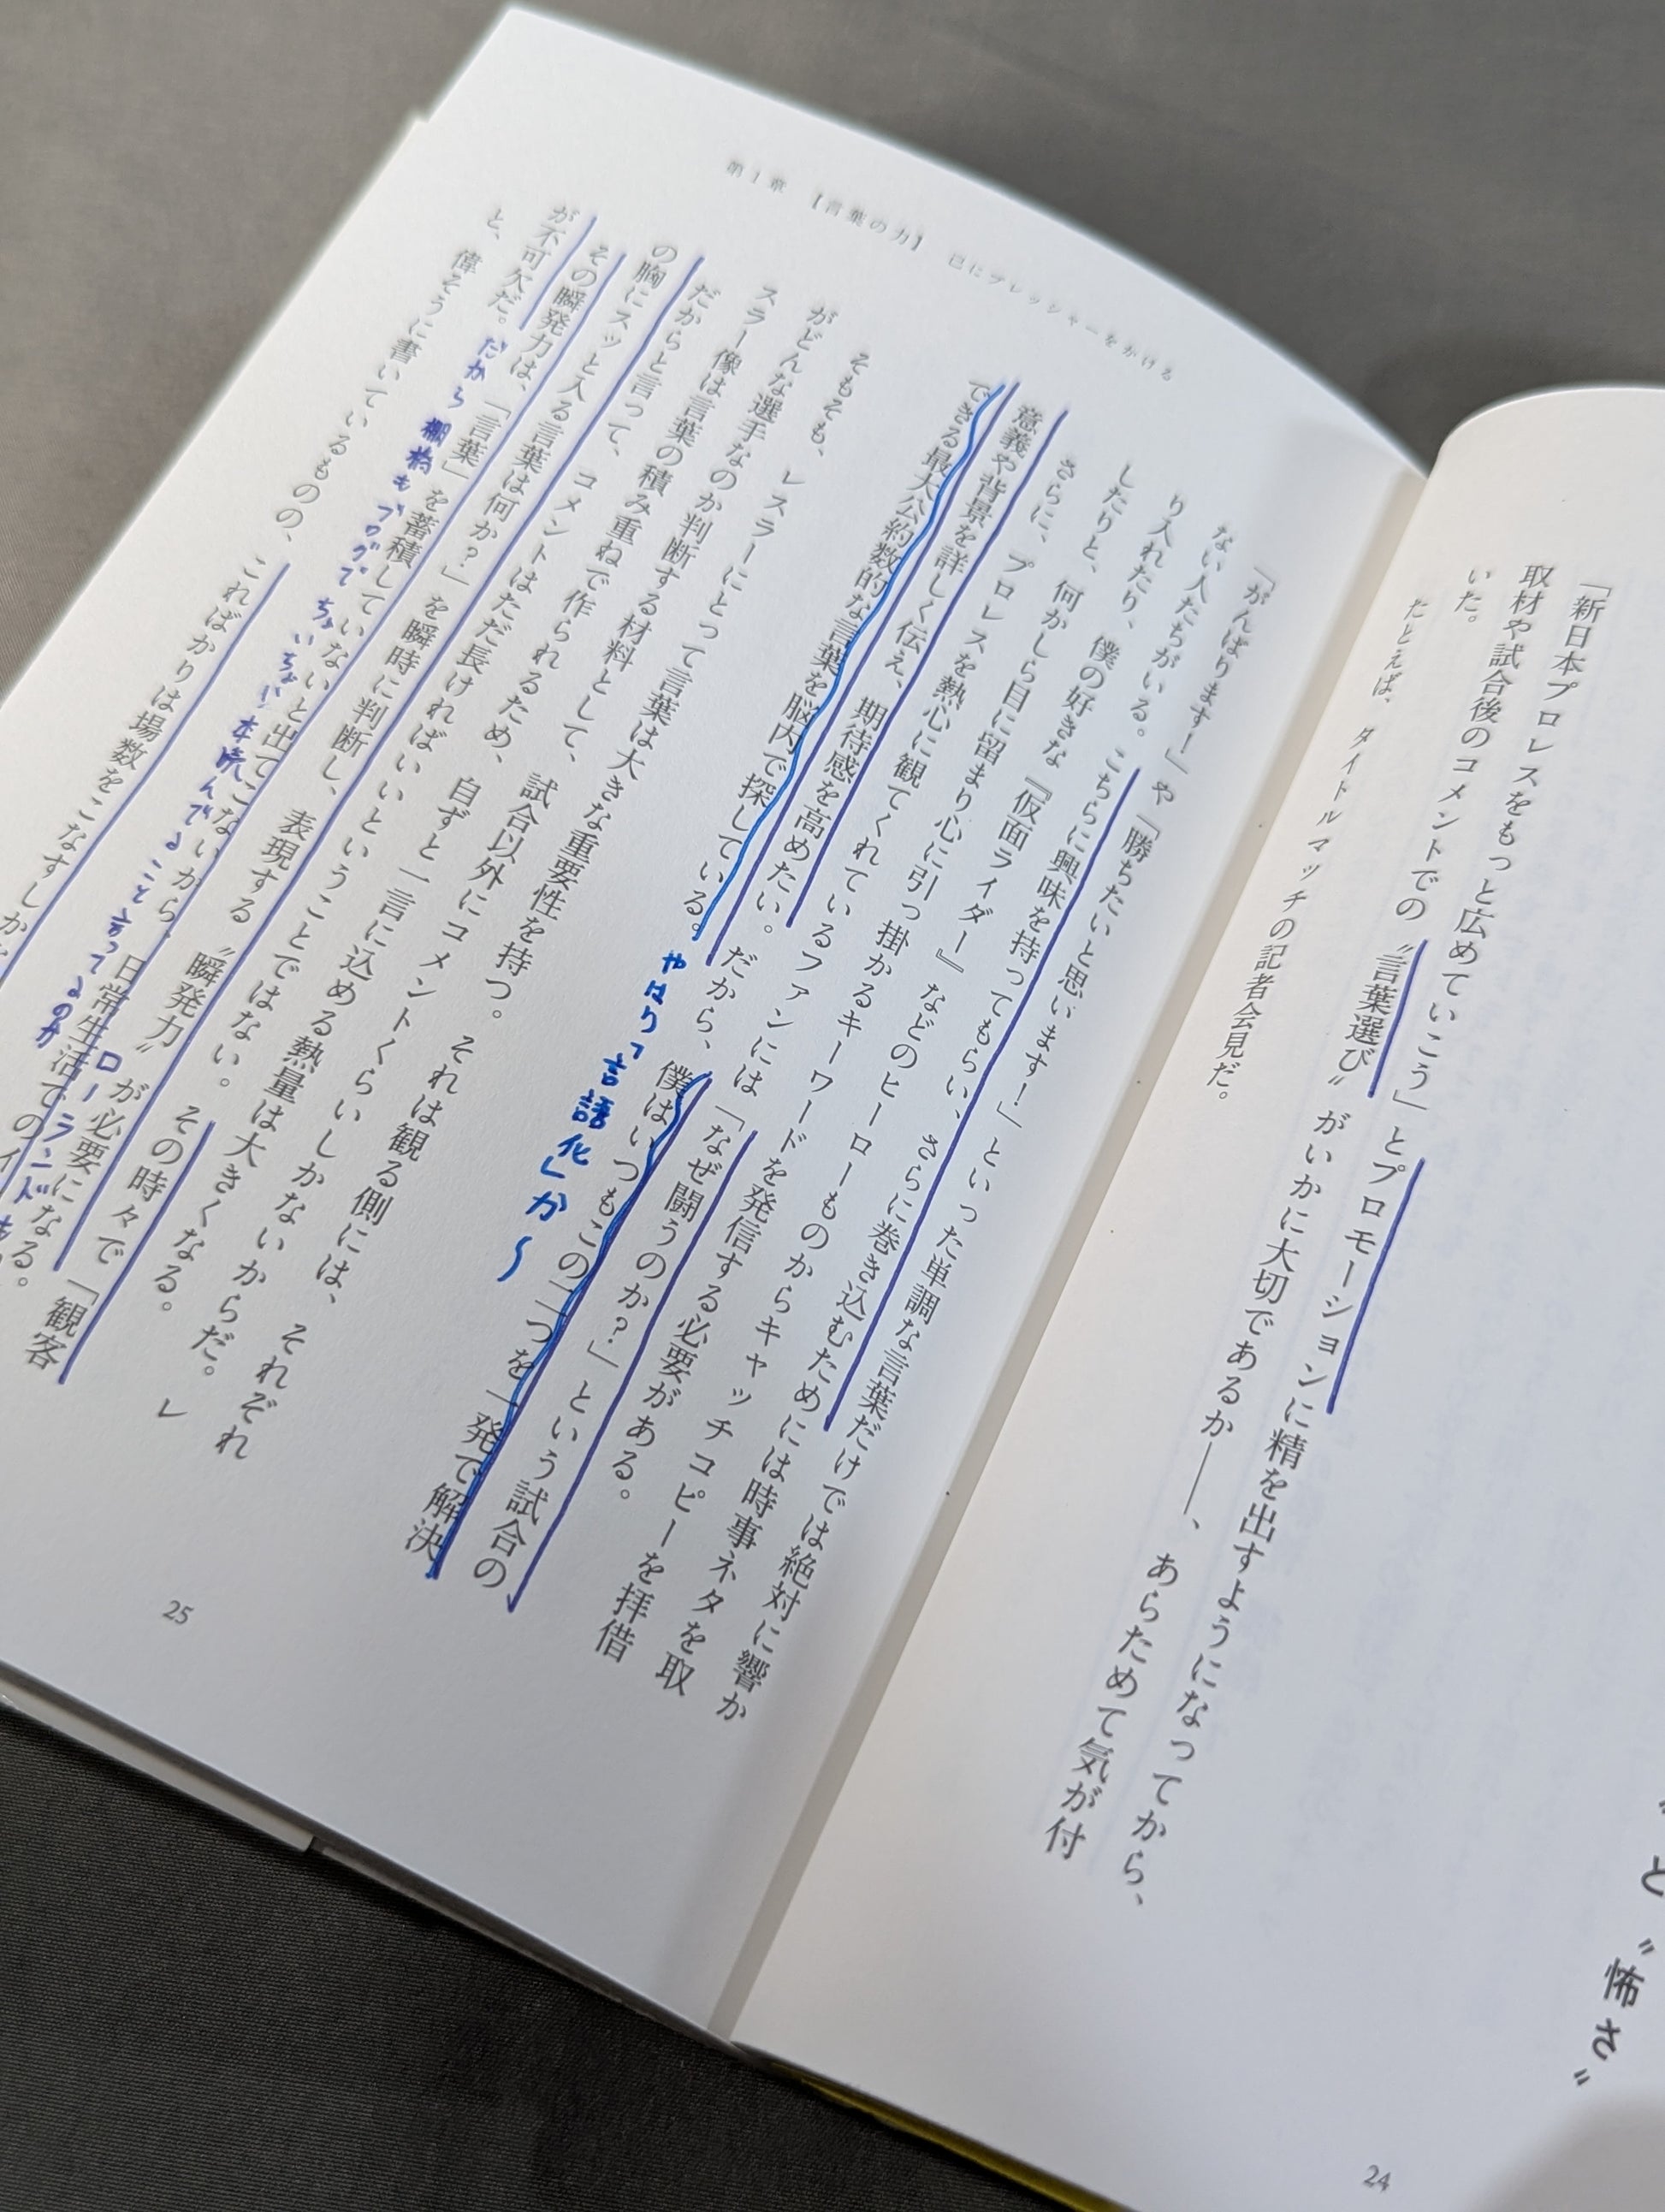 と〝怖さ〟
「新日本プロレスをもっと広めていこう」とプロモーションに精を出すようになってから、
取材や試合後のコメントでの〝言葉選び〟がいかに大切であるか――、あらためて気が付
いた。
たとえば、タイトルマッチの記者会見だ。
24
第1章 【言葉の力】 己にプレッシャーをかける
「がんばります！」や「勝ちたいと思います！」といった単調な言葉だけでは絶対に響か
ない人たちがいる。こちらに興味を持ってもらい、さらに巻き込むためには時事ネタを取
り入れたり、僕の好きな『仮面ライダー』などのヒーローものからキャッチコピーを拝借
したりと、何かしら目に留まり心に引っ掛かるキーワードを発信する必要がある。
さらに、プロレスを熱心に観てくれているファンには「なぜ闘うのか？」という試合の
意義や背景を詳しく伝え、期待感を高めたい。だから、僕はいつもこの二つを一発で解決
できる最大公約数的な言葉を脳内で探している。
やはり「言語化」か〜
そもそも、レスラーにとって言葉は大きな重要性を持つ。それは観る側には、それぞれ
がどんな選手なのか判断する材料として、試合以外にコメントくらいしかないからだ。レ
スラー像は言葉の積み重ねで作られるため、自ずと一言に込める熱量は大きくなる。
だからと言って、コメントはただ長ければいいということではない。その時々で「観客
の胸にスッと入る言葉は何か？」を瞬時に判断し、表現する〝瞬発力〟が必要になる。
その瞬発力は、「言葉」を蓄積していないと出てこないから、日常生活でのイ
が不可欠だ。
だから棚橋もブログでちょいちょい本読んでること言ってるのか
ローランドも
と、偉そうに書いているものの、こればかりは場数をこなすしか
25